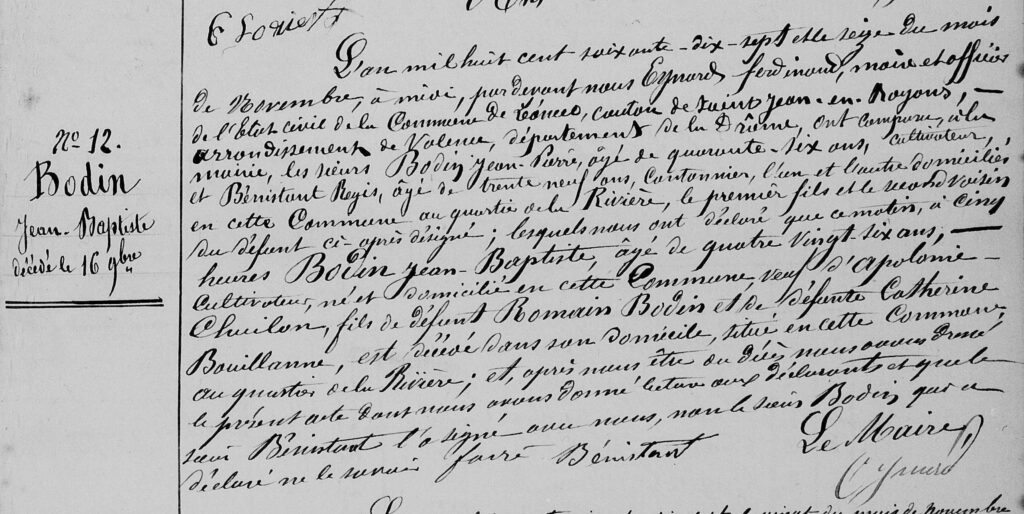 No 12.
Bodin
Jean-Baptiste
décédé le 16 9bre
L'an mil huit cent soixante-dix-sept et le seize du mois
de Novembre, à midi, pardevant nous Eymard ferdinand, maire et officier
de l'Etat civil de la Commune de canton de Saint Jean-en-Royans, —
arrondissement de Valence, département de la Drôme, ont comparu, à la
mairie, les sieurs Bodin Jean-Pierre, âgé de quarante-six ans, cultivateur,
et Bénistant Regis, âgé de trente neuf ans, cantonnier, l'un et l'autre domiciliés
en cette Commune au quartier de la Rivière, le premier fils et le second voisin
du défunt ci-après désigné; lesquels nous ont déclaré que ce matin, à cinq
heures Bodin Jean-Baptiste, âgé de quatre vingt-six ans, —
cultivateur, né et domicilié en cette Commune, veuf d'Apolonie
Chuilon, fils de défunt Romain Bodin et de défunte Catherine
Bouillanne, est décédé dans son domicile, situé en cette Commune,
au quartier de la Rivière; et, après nous être du décès nous avons dressé
le présent acte dont nous avons donné lecture aux déclarants et que le
sieur Bénistant l'a signé avec nous, non le sieur Bodin qui a
déclaré ne le savoir Bénistant Le Maire,
Eymard
du mois de novembre